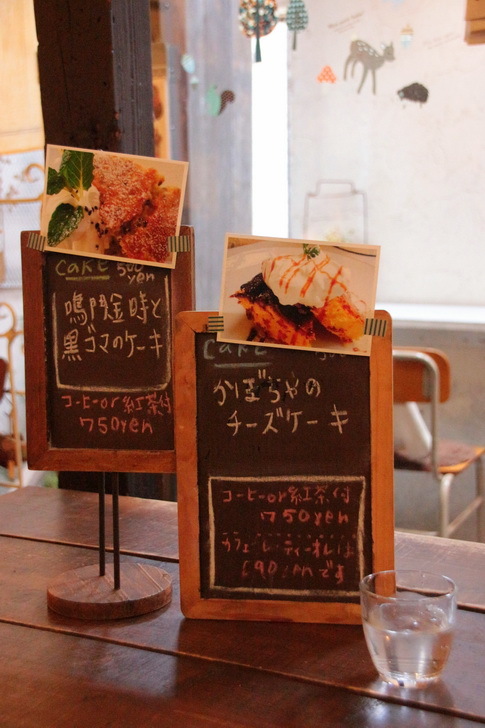 cake 500
yen
鳴門金時と
黒ゴマのケーキ
コーヒーor紅茶付
750yen
cake
かぼちゃの
チーズケーキ
コーヒーor紅茶付
750yen
カフェオレ・ティーオレは
です